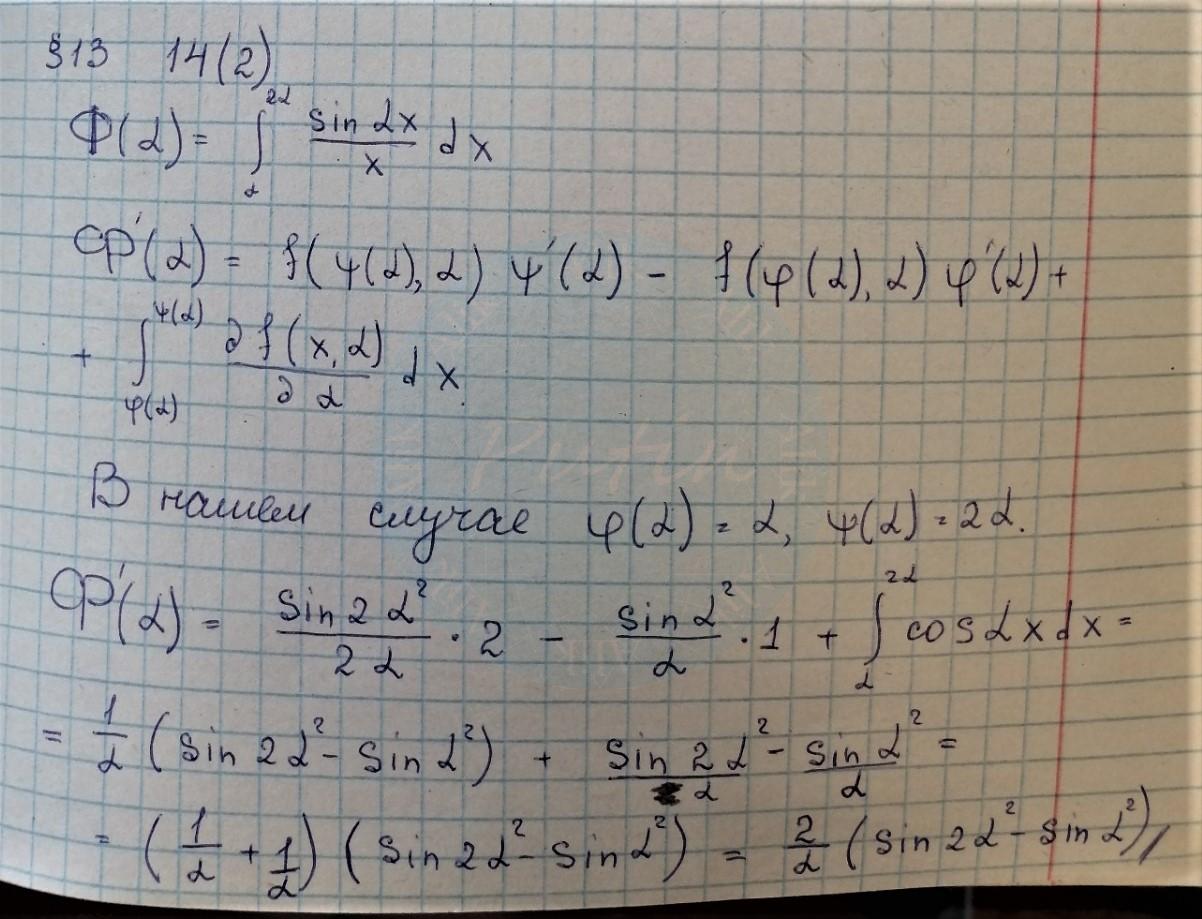 §13 14(2)
Φ(α) = ∫_α^{2α} \frac{sin αx}{x} dx
Φ'(α) = f(ψ(α), α) ψ'(α) - f(φ(α), α) φ'(α) +
+ ∫_{φ(α)}^{ψ(α)} \frac{∂f(x, α)}{∂α} dx.
В нашем случае φ(α) = α, ψ(α) = 2α.
Φ'(α) = \frac{sin 2α²}{2α} · 2 - \frac{sin α²}{α} · 1 + ∫_α^{2α} cos αx dx =
= \frac{1}{α} (sin 2α² - sin α²) + \frac{sin 2α²}{α} - \frac{sin α²}{α} =
= (\frac{1}{α} + \frac{1}{α}) (sin 2α² - sin α²) = \frac{2}{α} (sin 2α² - sin α²)//